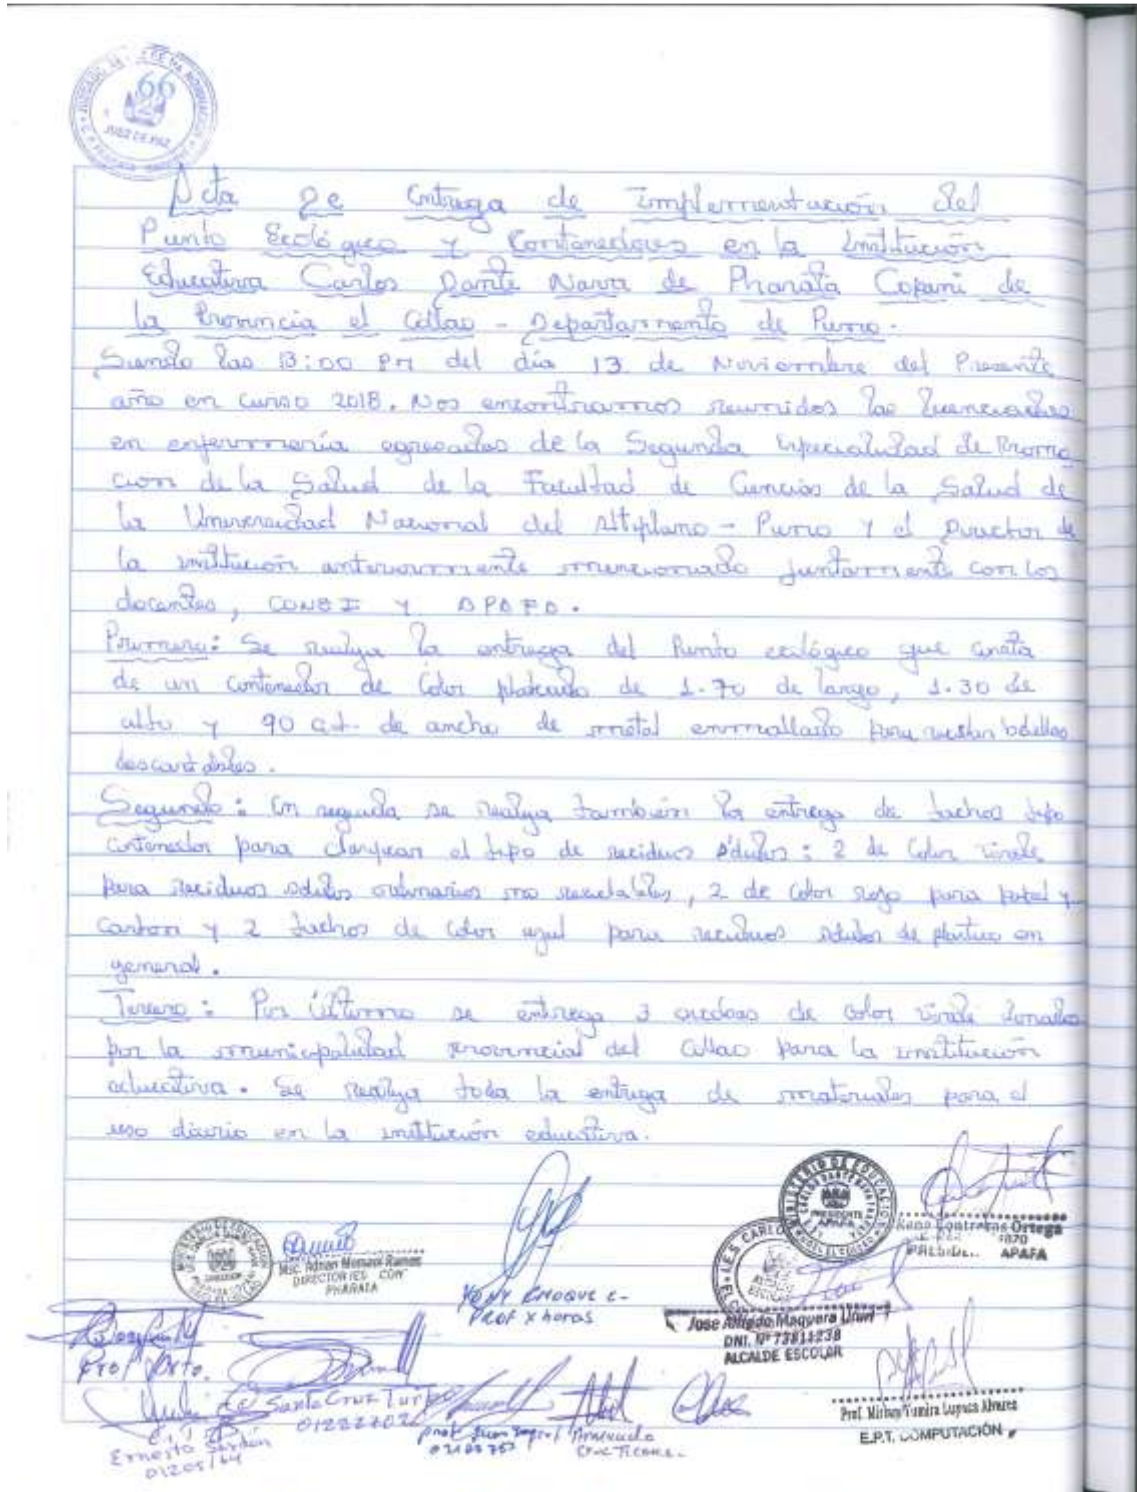 66
JUEZ DE PAZ
Acta De Entrega de Implementación del
Punto Ecológico y Contenedores en la Institución
Educativa Carlos Dante Nava de Pharata Copani de
la Provincia el Collao - Departamento de Puno.
Siendo las 13:00 PM del día 13 de Noviembre del Presente
año en curso 2018. Nos encontramos reunidos las licenciadas
en enfermería egresadas de la Segunda Especialidad de Promo
cion de la Salud de la Facultad de Ciencias de la Salud de
la Universidad Nacional del Altiplano - Puno Y el Director de
la institución anteriormente mencionado juntamente con los
docentes, CONEI Y APAFA.
Primero: Se realiza la entrega del Punto ecológico que consta
de un contenedor de Color plateado de 1.70 de largo, 1.30 de
alto y 90 de ancho de metal enmallado para botellas
descartables.
Segundo: En seguida se realiza también la entrega de tachos tipo
contenedor para clasificar el tipo de reciduos sólidos: 2 de Color verde
para reciduos sólidos ordinarios no reciclables, 2 de color rojo para papel y
carton y 2 tachos de color azul para reciduos sólidos de plastico en
general.
Tercero: Por último se entrega 3 de color verde donados
por la municipalidad provincial del Collao para la institución
educativa. Se realiza toda la entrega de materiales para el
uso diario en la institución educativa.
MINISTERIO DE EDUCACIÓN
CARLOS DANTE NAVA
PRESIDENTE
APAFA
Contreras Ortega
1870
APAFA
Msc. Adrian Mamani Ramos
DIRECTOR IES. CDN
PHARATA
YONY CHOQUE C.
Prof x horas
Jose Alfredo Maquera
DNI. Nº 73811238
ALCALDE ESCOLAR
Prof Arto.
Santa Cruz Turpo
Ernesto Sardón
Prof. Juan
Cruz Ticona
Prof. Yumira Lupaca Alvares
E.P.T. COMPUTACIÓN